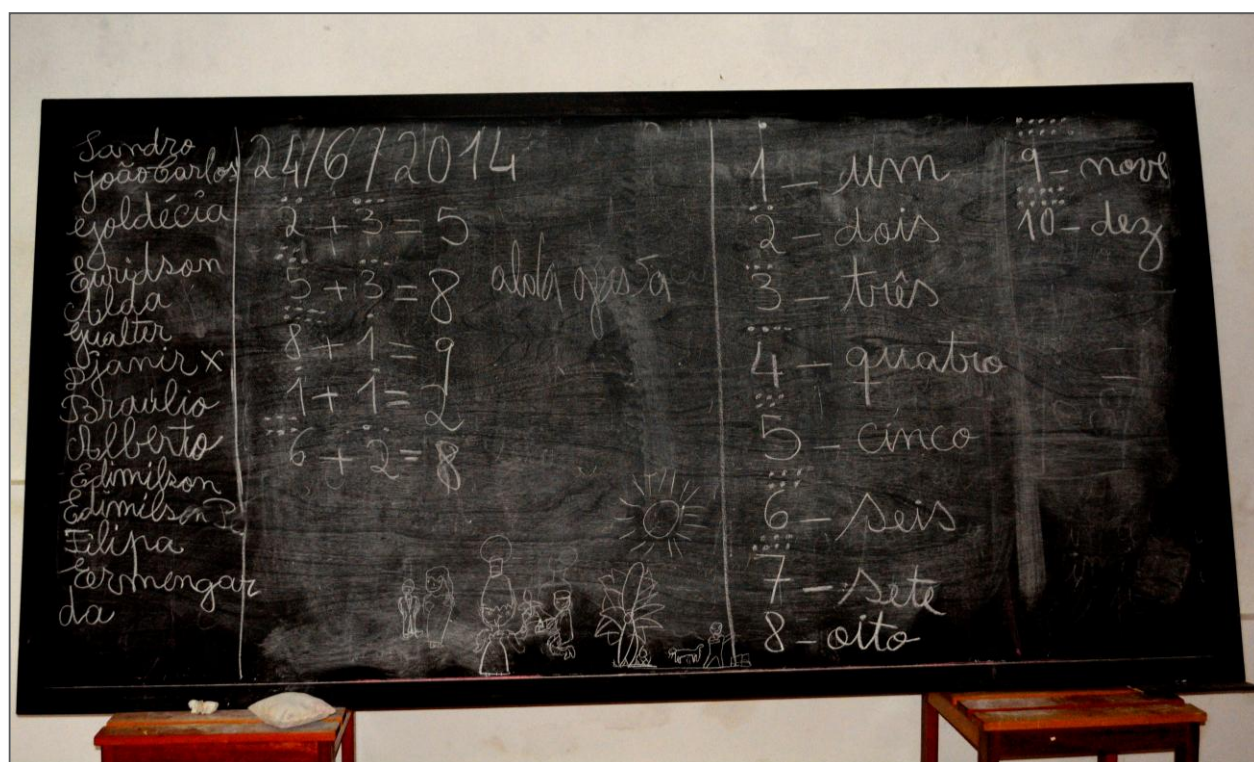 Sandro
João Carlos
Goldécia
Euridson
Alda
Gualter
Djanir x
Braúlio
Alberto
Edimilson
Edimilson P.
Filipa
Ermengar
da
24/6/2014
2 + 3 = 5
5 + 3 = 8
8 + 1 = 9
1 + 1 = 2
6 + 2 = 8
1 - um
2 - dois
3 - três
4 - quatro
5 - cinco
6 - seis
7 - sete
8 - oito
9 - nove
10 - dez